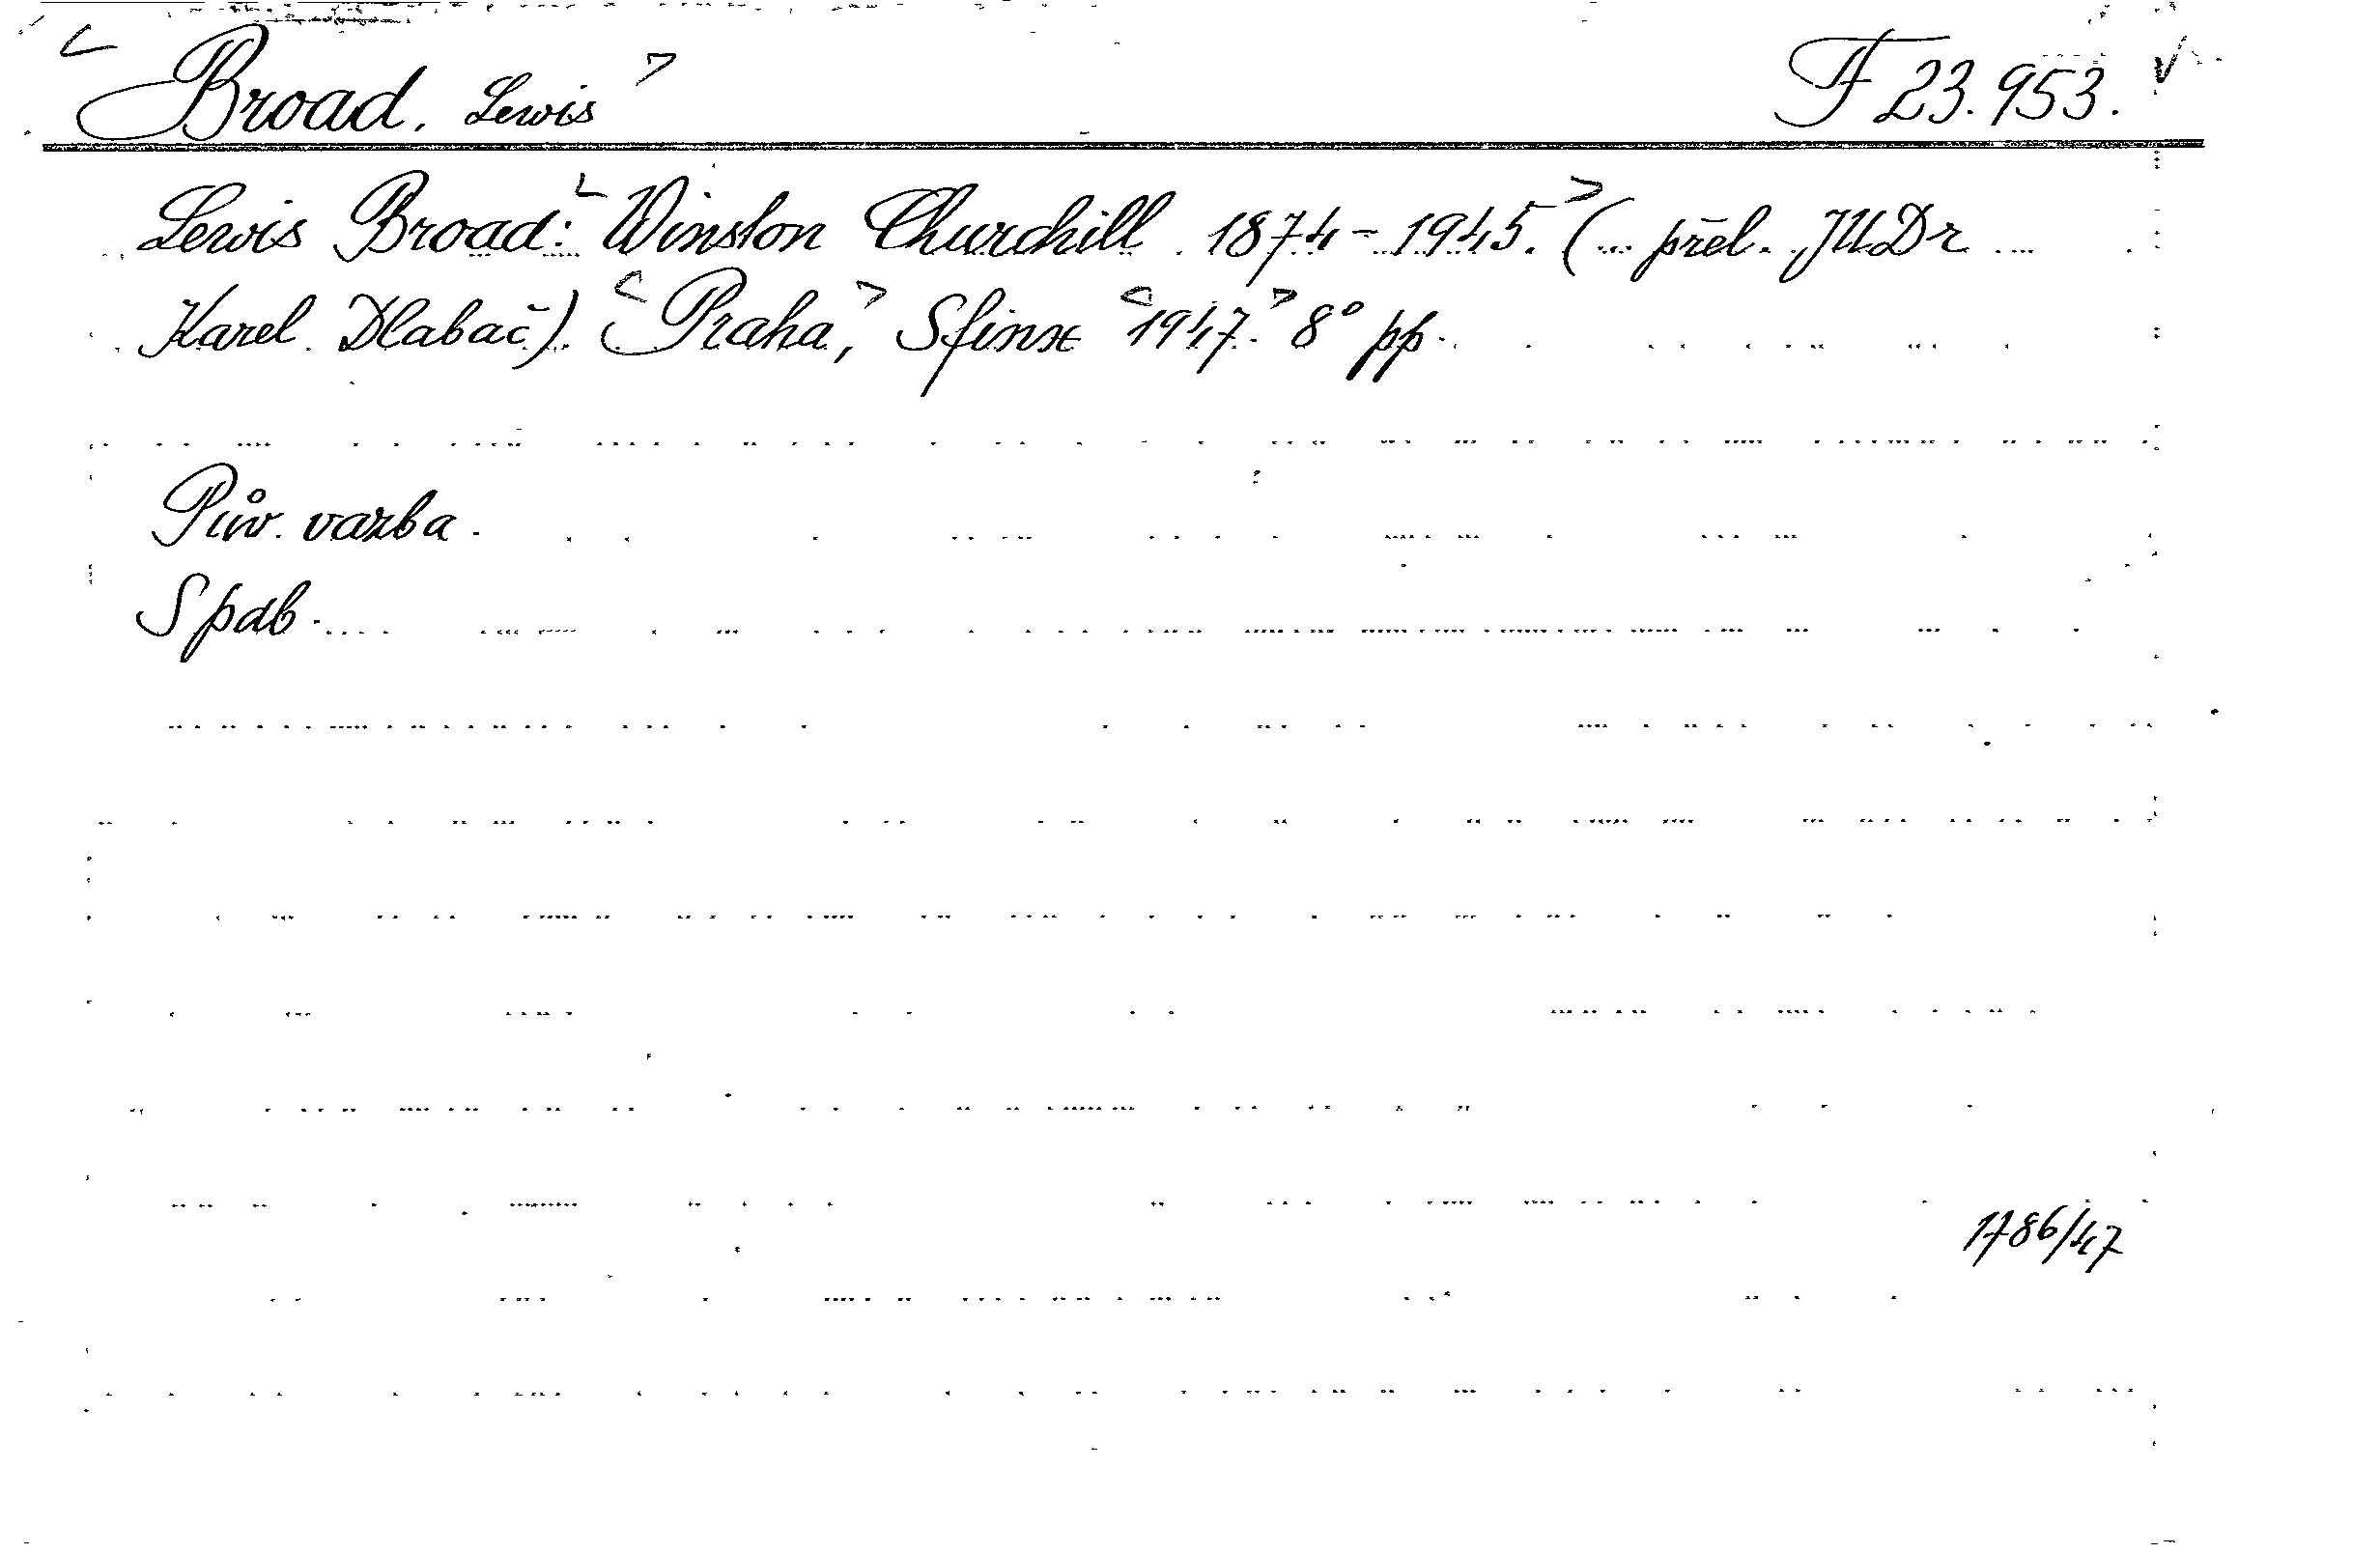 < Broad. Lewis > F 23.953. √
Lewis Broad: <Winston Churchill 1874-1945.> (... přel. JUDr
Karel Dlabač). <Praha,> Sfinx <1947.> 8° pp.
Pův. vazba.
S pdb.
1786/47